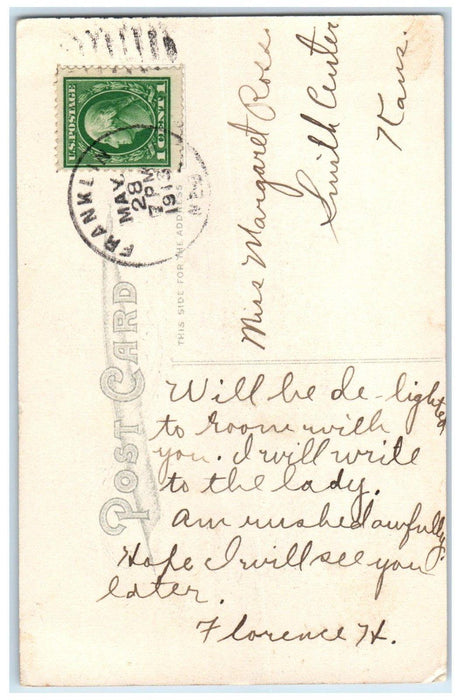 U.S. POSTAGE
1 CENT 1
FRANKLIN
MAY
28
7 PM
1913
Miss Margaret Ross
Smith Center
Kans.
THIS SIDE FOR THE ADDRESS
POST CARD
Will be de-lighted
to room with
you. I will write
to the lady.
Am rushed awfully.
Hope I will see you
later.
Florence H.